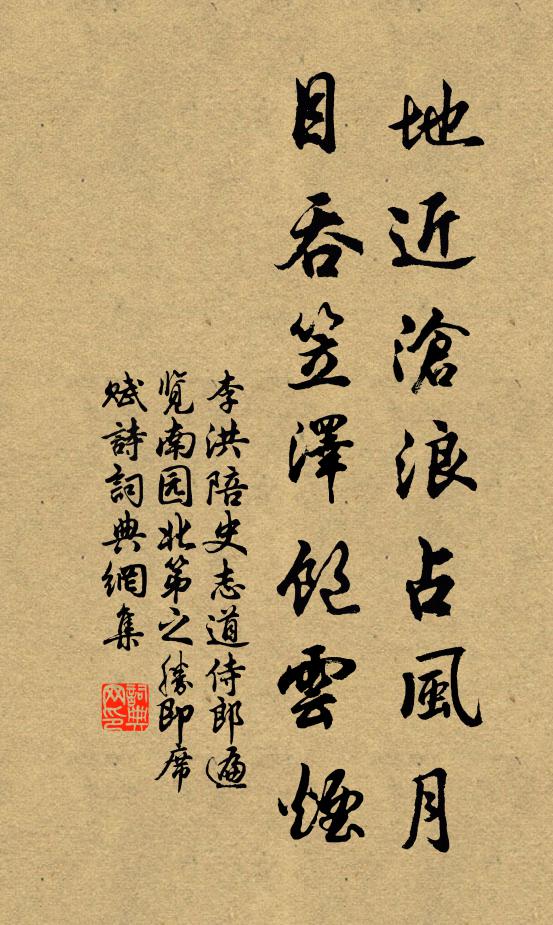 地近滄浪占風月
目吞笠澤飽雲煙
李洪陪史志道侍郎遍
覽南园北第之勝即席
賦詩詞典網集
詞典
网印